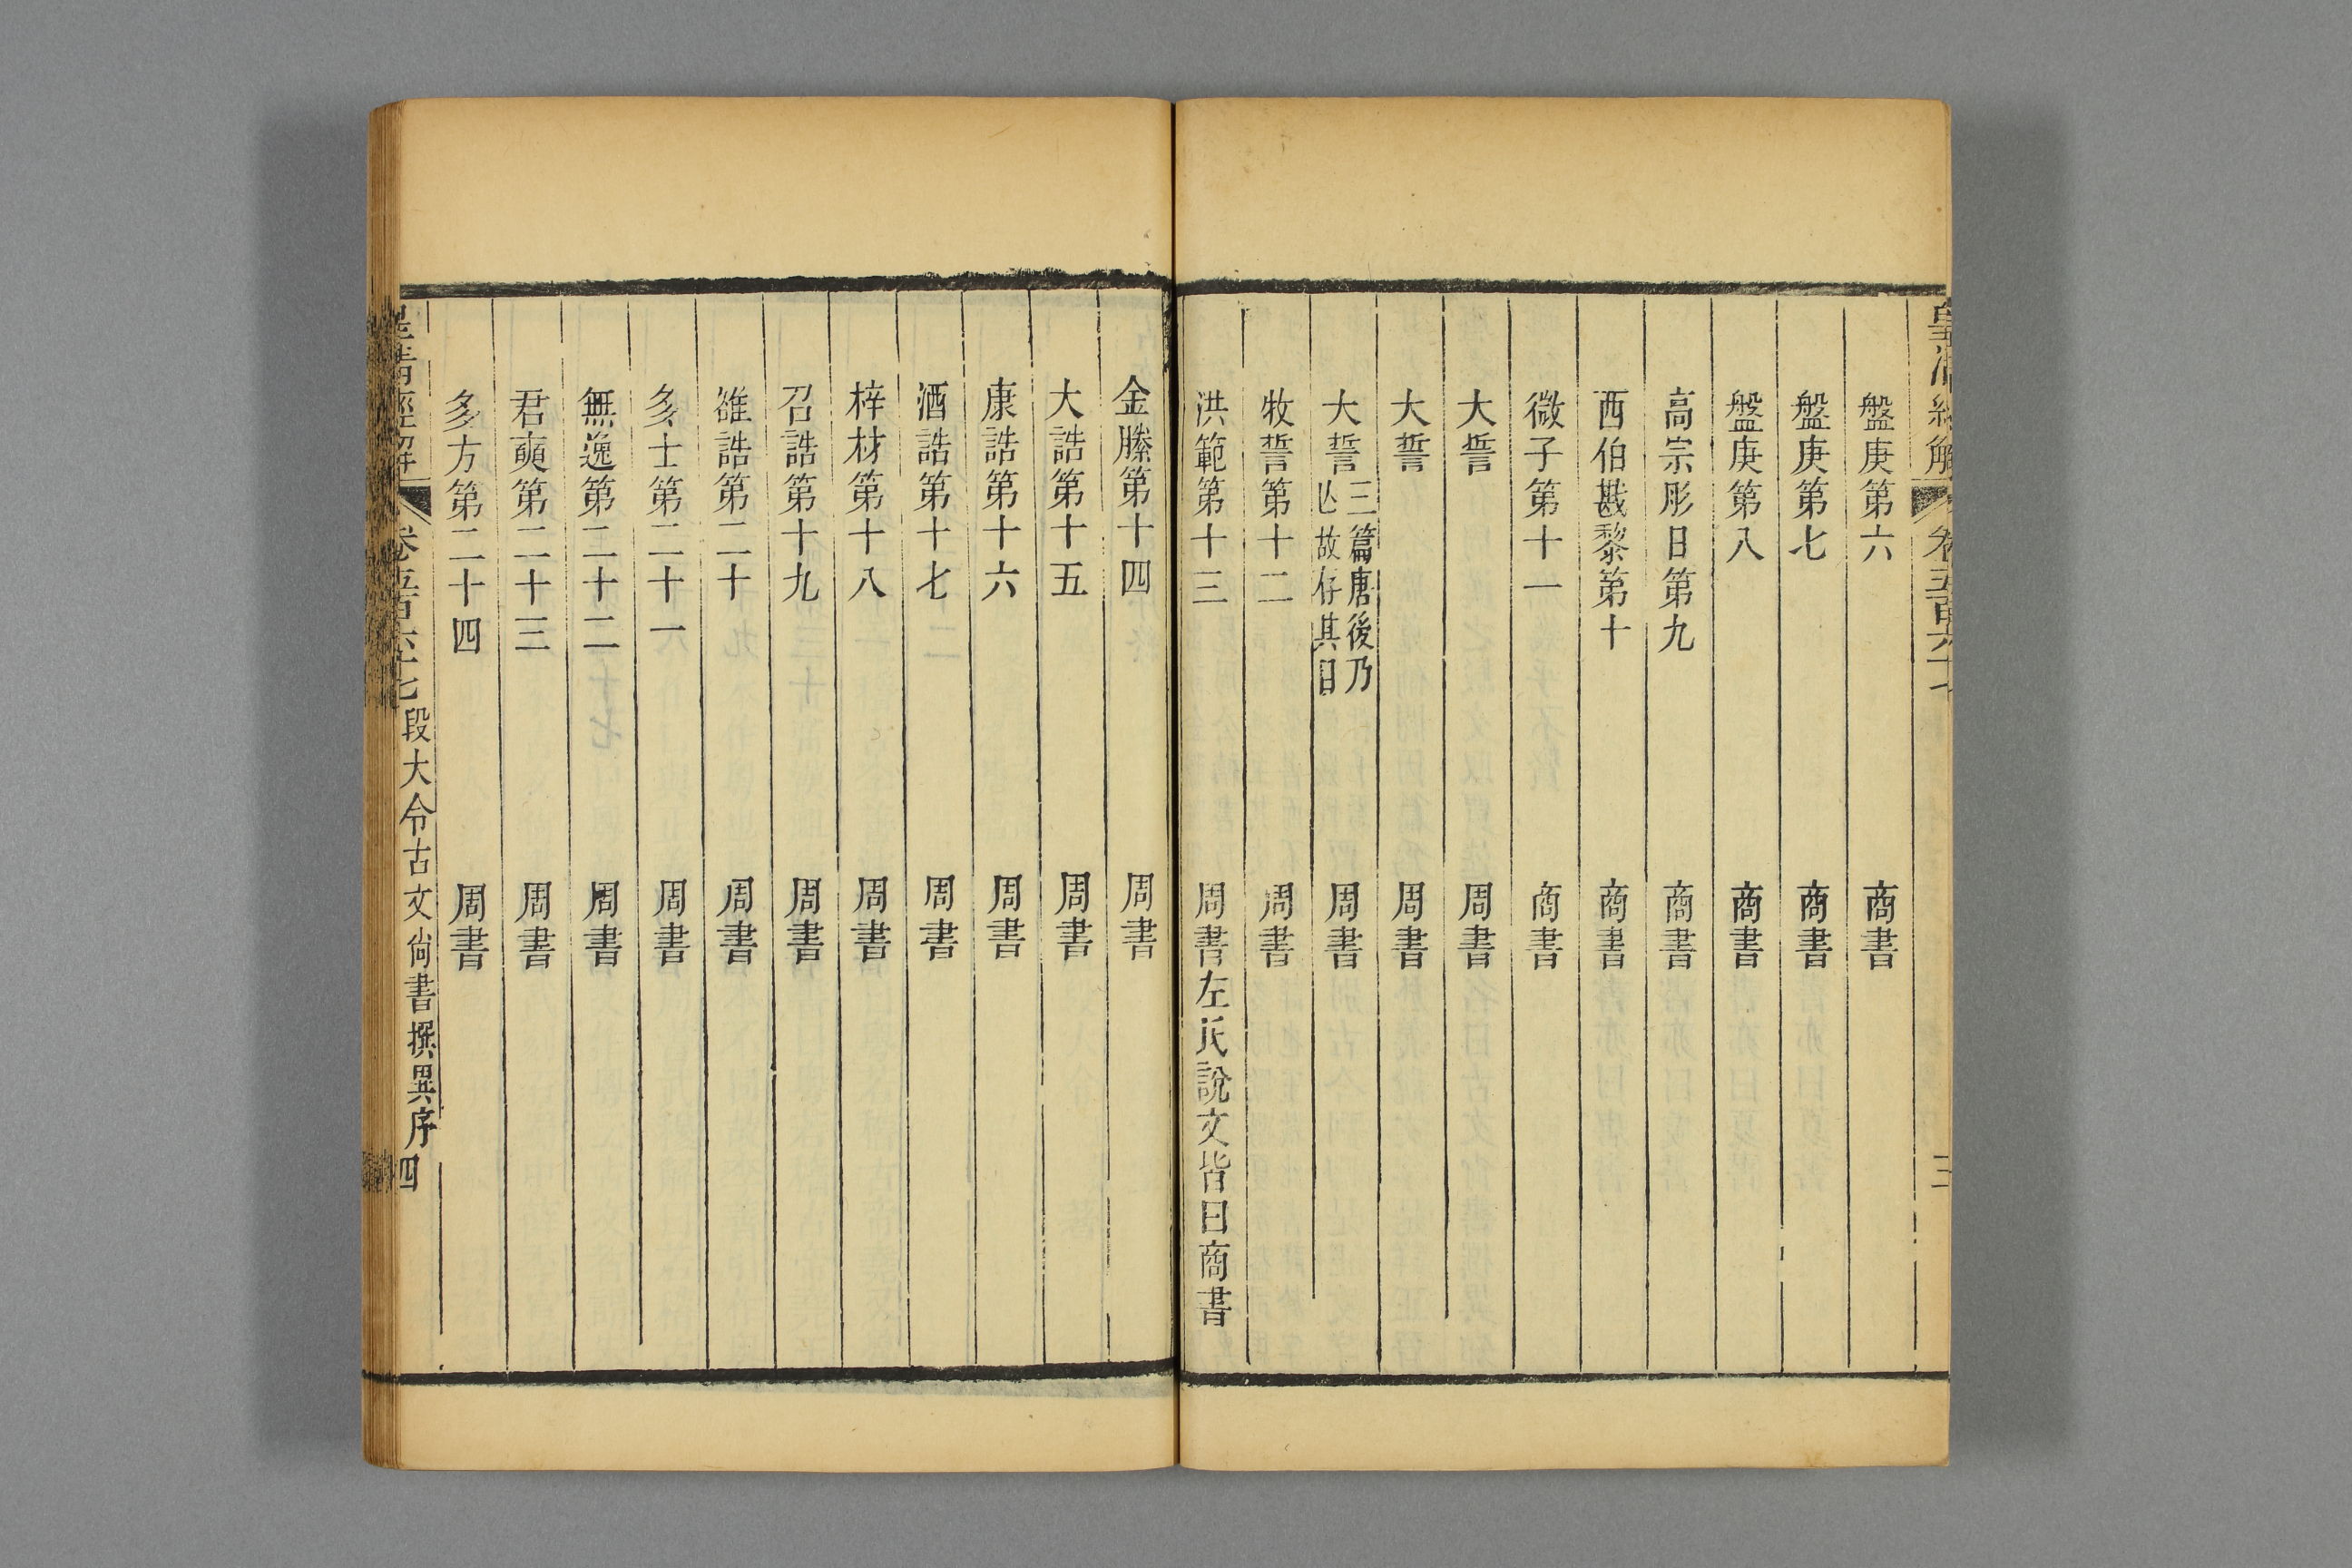 皇清經解 卷五百六十七 三
盤庚第六 商書
盤庚第七 商書
盤庚第八 商書
高宗肜日第九 商書
西伯戡黎第十 商書
微子第十一 商書
大誓 周書
大誓 周書
大誓 三篇唐後乃亾故存其目 周書
牧誓第十二 周書
洪範第十三 周書左氏說文皆曰商書
金縢第十四 周書
大誥第十五 周書
康誥第十六 周書
酒誥第十七 周書
梓材第十八 周書
召誥第十九 周書
雒誥第二十 周書
多士第二十一 周書
無逸第二十二 周書
君奭第二十三 周書
多方第二十四 周書
皇清經解 卷五百六十七 段大令古文尙書撰異序 四